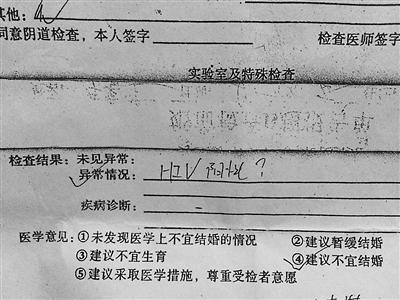 其他:
同意阴道检查，本人签字 检查医师签字
实验室及特殊检查
检查结果：未见异常：
异常情况： HIV
疾病诊断：
医学意见：①未发现医学上不宜结婚的情况 ②建议暂缓结婚
③建议不宜生育 ④建议不宜结婚
⑤建议采取医学措施，尊重受检者意愿